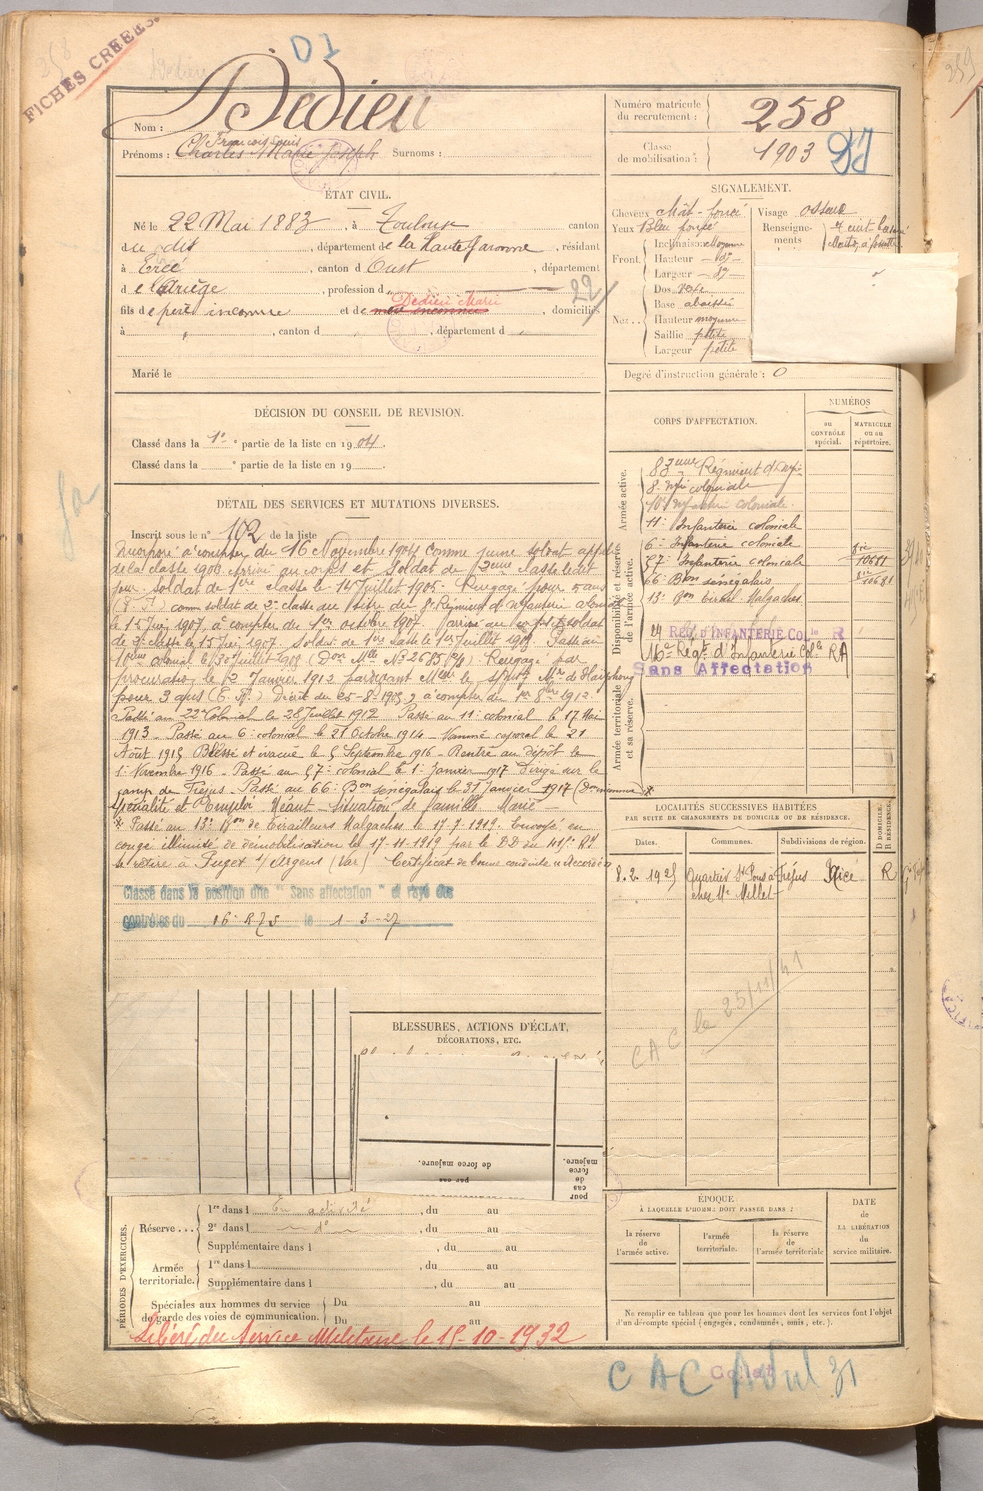 FICHES CRÉÉES.
258
DI
Nom : Dedieu
Prénoms : Charles Marie Joseph Surnoms :
François Louis
Numéro matricule du recrutement : 258
Classe de mobilisation : 1903
ÉTAT CIVIL.
Né le 22 Mai 1883, à Toulouse canton
du dit, département de la Haute Garonne, résidant
à Ercé, canton d'Oust, département
de l'Ariège, profession d
22/
fils de père inconnu et de mère inconnue, domiciliés
Dedieu Marie
à , canton d , département d
Marié le
SIGNALEMENT.
Cheveux chât-foncé
Yeux Bleu foncé
Front. Inclinaison Moyenne
Hauteur - d° -
Largeur - d° -
Nez. Dos
Base abaissée
Hauteur moyenne
Saillie petite
Largeur petite
Visage osseux
Renseignements
Degré d'instruction générale : 0
DÉCISION DU CONSEIL DE REVISION.
Classé dans la 1e partie de la liste en 1904.
Classé dans la ° partie de la liste en 19
DÉTAIL DES SERVICES ET MUTATIONS DIVERSES.
Inscrit sous le n° 102 de la liste
Incorporé à compter du 16 Novembre 1904 comme jeune soldat appelé
de la classe 1903. Arrivé au corps et Soldat de 2eme classe le dit
jour. Soldat de 1ère classe le 14 Juillet 1905. Rengagé pour 5 ans
comme soldat de 2e classe au titre du 8e Régiment d'Infanterie coloniale
le 15 1907, à compter du 1er octobre 1907. Arrivé au corps et soldat
de 2e classe le 15 1907. Soldat de 1ère classe le 1er Juillet 190 Passé au
10eme colonial le 30 Juillet 1908 Rengagé par
procuration le 2 Janvier 1912 pardevant
pour 3 ans Décret du 25-8-1905 à compter du 1er 8bre 1912.
Passé au 22e Colonial le 28 Juillet 1912 Passé au 11e colonial le 17 Mai
1913 - Passé au 6e colonial le 21 Octobre 1914 - Nommé caporal le 21
Août 1915 Blessé et évacué le 5 Septembre 1916 - Rentré au dépôt le
1er Novembre 1916 - Passé au 57e colonial le 1er Janvier 1917 Dirigé sur le
camp de Fréjus - Passé au 66e Bon sénégalais le 31 Janvier 1917
Spécialité et Emploi Néant - Situation de famille Marié -
* Passé au 13e Bon de Tirailleurs Malgaches le 17-7-1919. Envoyé en
congé illimité de démobilisation le 17-11-1919 par le DD du
Se retire à Puget s/ Argens (Var) Certificat de bonne conduite "Accordé"
Classé dans la position dite "Sans affectation" et rayé des
contrôles du 16e le 1-3-27
CORPS D'AFFECTATION.
NUMÉROS
au CONTRÔLE spécial.
MATRICULE ou au répertoire.
Armée active.
8eme Régiment d'Infie
8e Infie coloniale
10e Infanterie coloniale
11e Infanterie coloniale
Disponibilité et réserve de l'armée active.
6e Infanterie coloniale
57e Infanterie coloniale 10681
66e Bon sénégalais 10681
13e Bon tirail. Malgaches
Armée territoriale et sa réserve.
24 REG D'INFANTERIE COLle R
16e Régt d'Infanterie Colle RA
Sans Affectation
LOCALITÉS SUCCESSIVES HABITÉES
PAR SUITE DE CHANGEMENTS DE DOMICILE OU DE RÉSIDENCE.
Dates. Communes. Subdivisions de région. D DOMICILE. R RÉSIDENCE.
8.2.1925 Quartier St Pons à Fréjus Nice R
chez Mr Millet
CAC le 25/11/41
BLESSURES, ACTIONS D'ÉCLAT,
DÉCORATIONS, ETC.
de force majeure.
pour cas de force majeure
PÉRIODES D'EXERCICES.
Réserve... 1re dans l En activité, du au
2e dans l - d° -, du au
Supplémentaire dans l , du au
Armée territoriale. 1re dans l , du au
Supplémentaire dans l , du au
Spéciales aux hommes du service de garde des voies de communication. Du au
Du au
Libéré du Service Militaire le 15-10-1932
ÉPOQUE
À LAQUELLE L'HOMME DOIT PASSER DANS :
la réserve de l'armée active.
l'armée territoriale.
la réserve de l'armée territoriale
DATE DE LA LIBÉRATION du service militaire.
Ne remplir ce tableau que pour les hommes dont les services font l'objet
d'un décompte spécial (engagés, condamnés, omis, etc.).
CAC
31